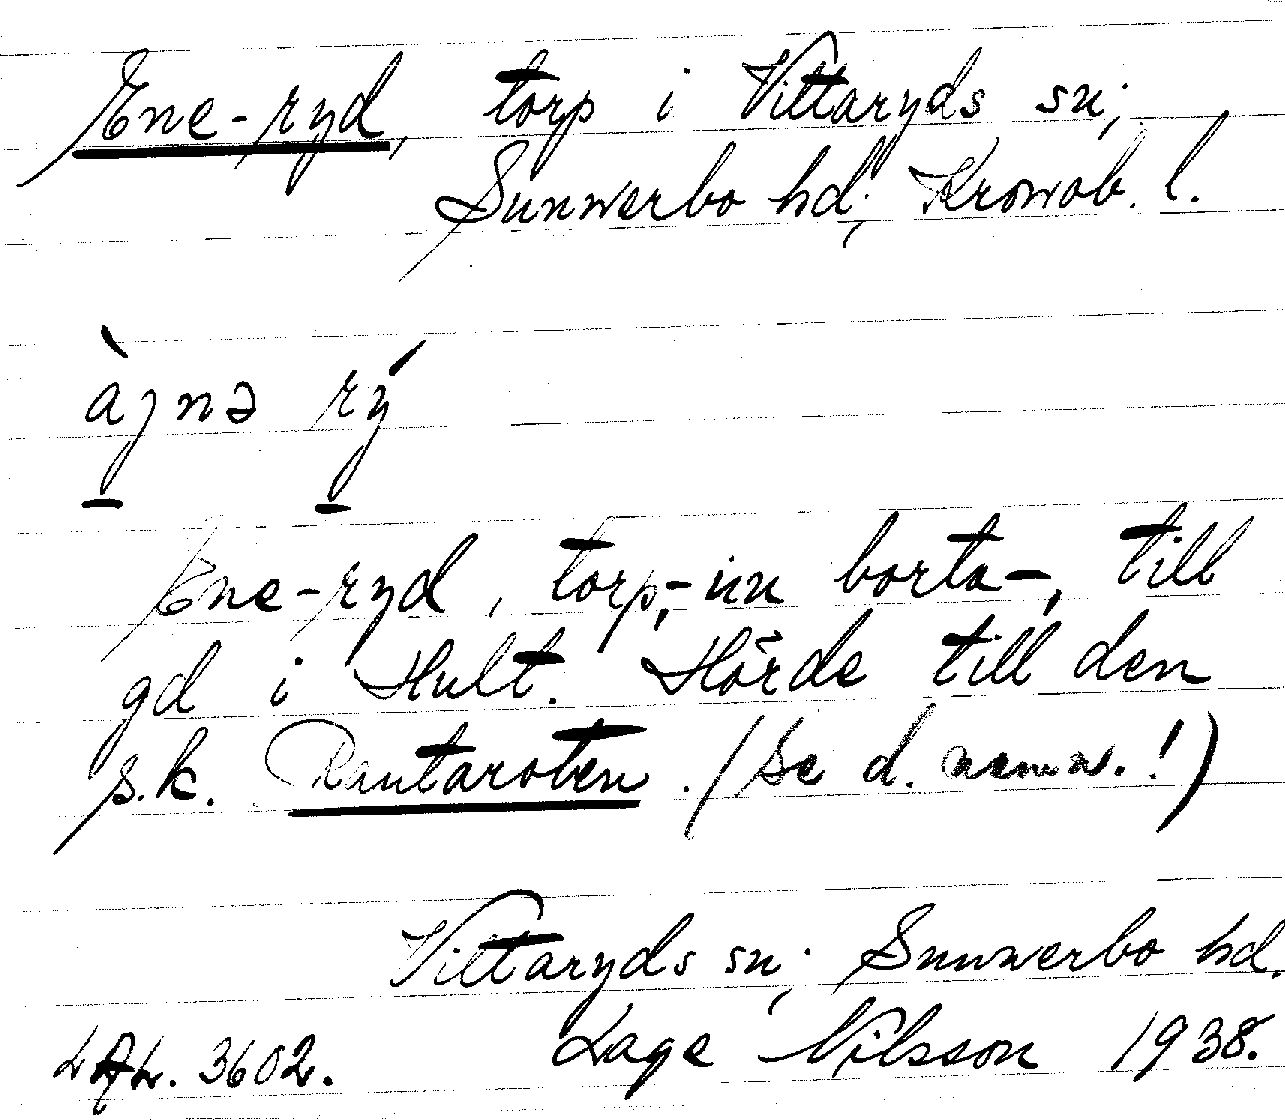 Ene-ryd, torp i Vittaryds sn;
Sunnerbo hd; Kronob. l.
àjnə rý
Ene-ryd, torp,- nu borta -, till
gd i Hult. Hörde till den
s.k. Rantaroten. (Se d. namn.!)
Vittaryds sn; Sunnerbo hd.
LAL. 3602. Lage Nilsson 1938.